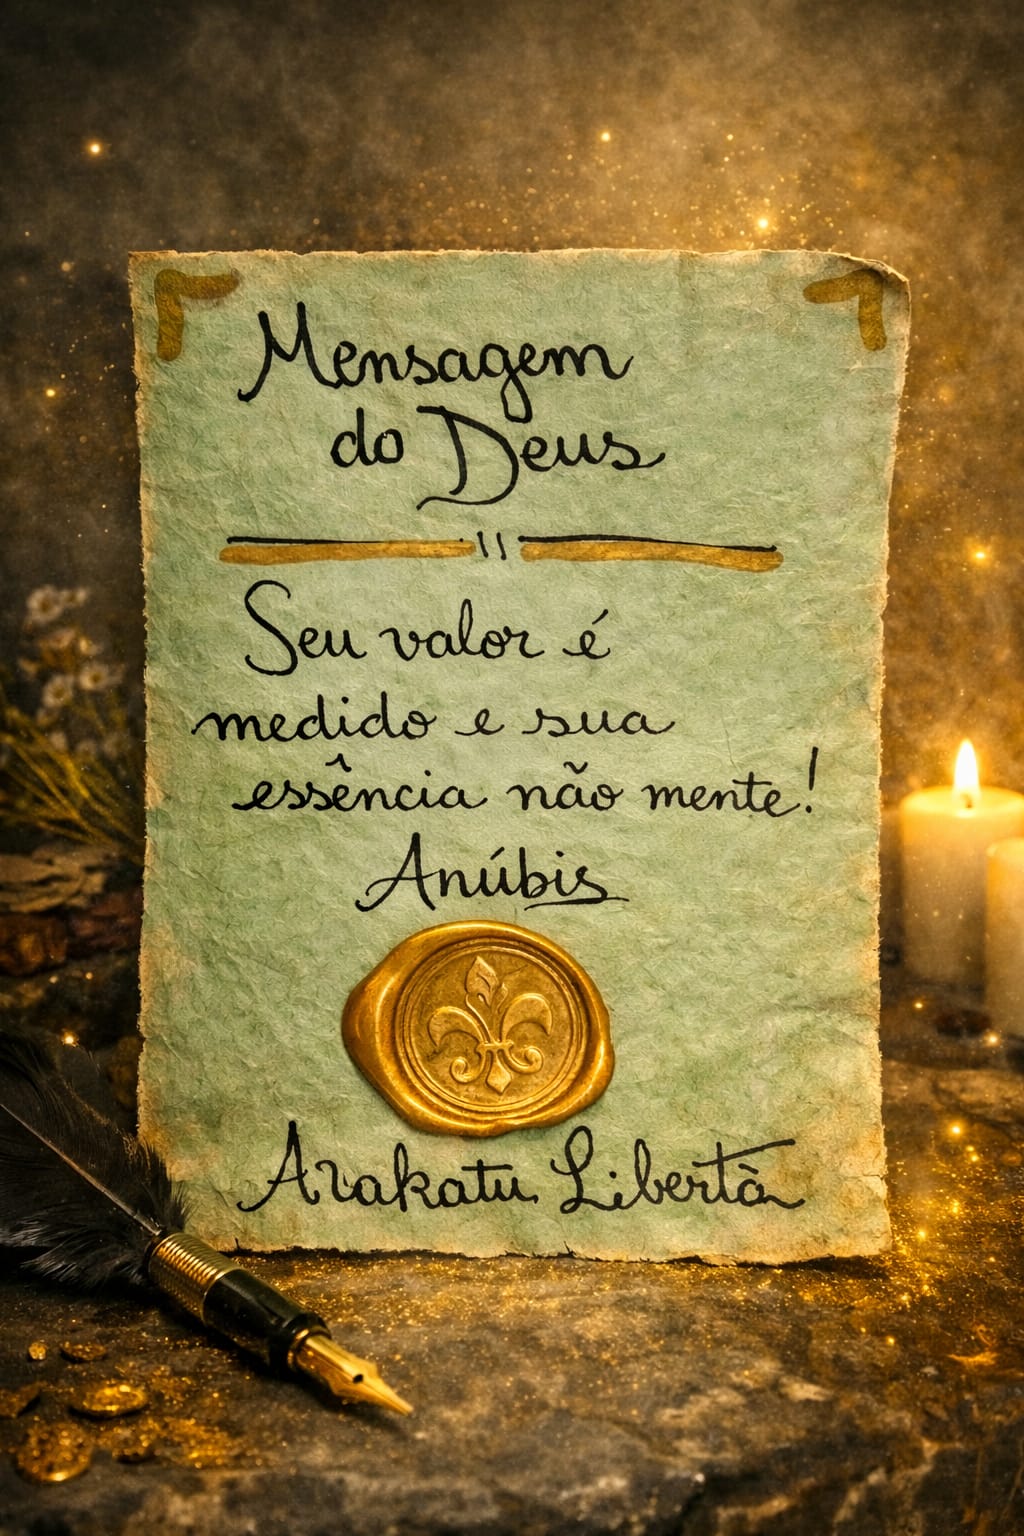 Mensagem
do Deus
Seu valor é
medido e sua
essência não mente!
Anúbis
Arakatu Libertà